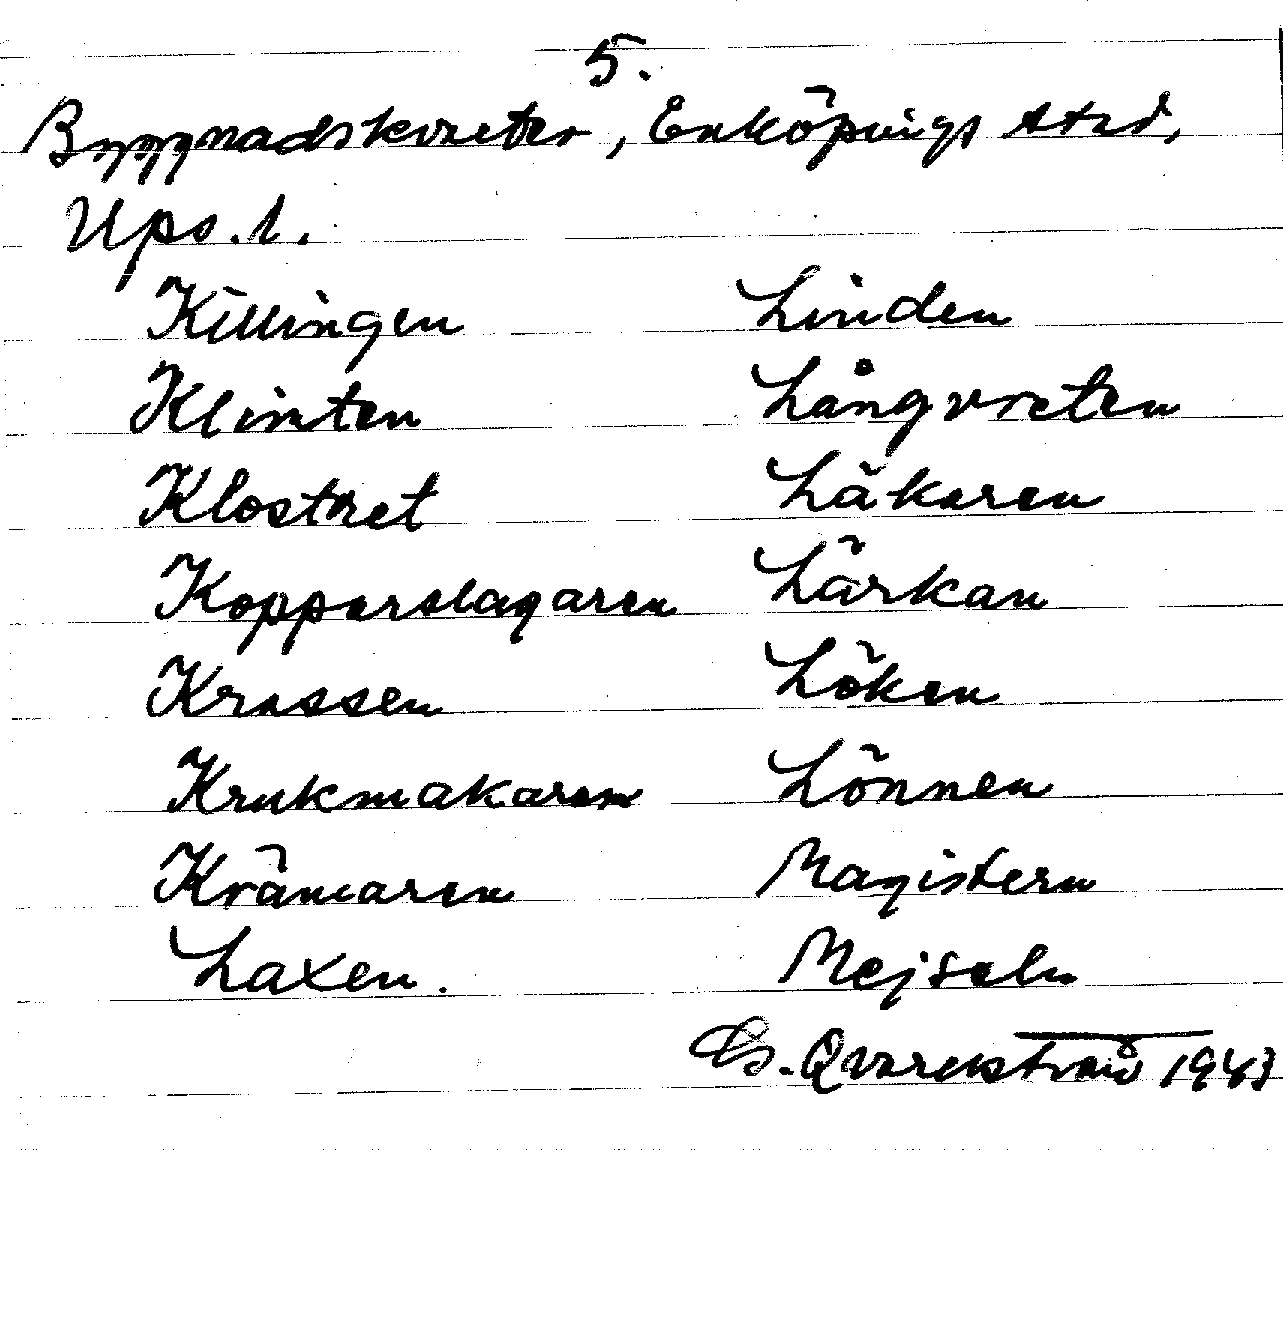 5.
Byggnadskvarter, Enköpings stad,
Ups. l.
Killingen
Klinten
Klostret
Kopparslagaren
Krassen
Krukmakaren
Krämaren
Laxen.
Linden
Långvreten
Läkaren
Lärkan
Löken
Lönnen
Magistern
Mejseln
Qvarnström 1943